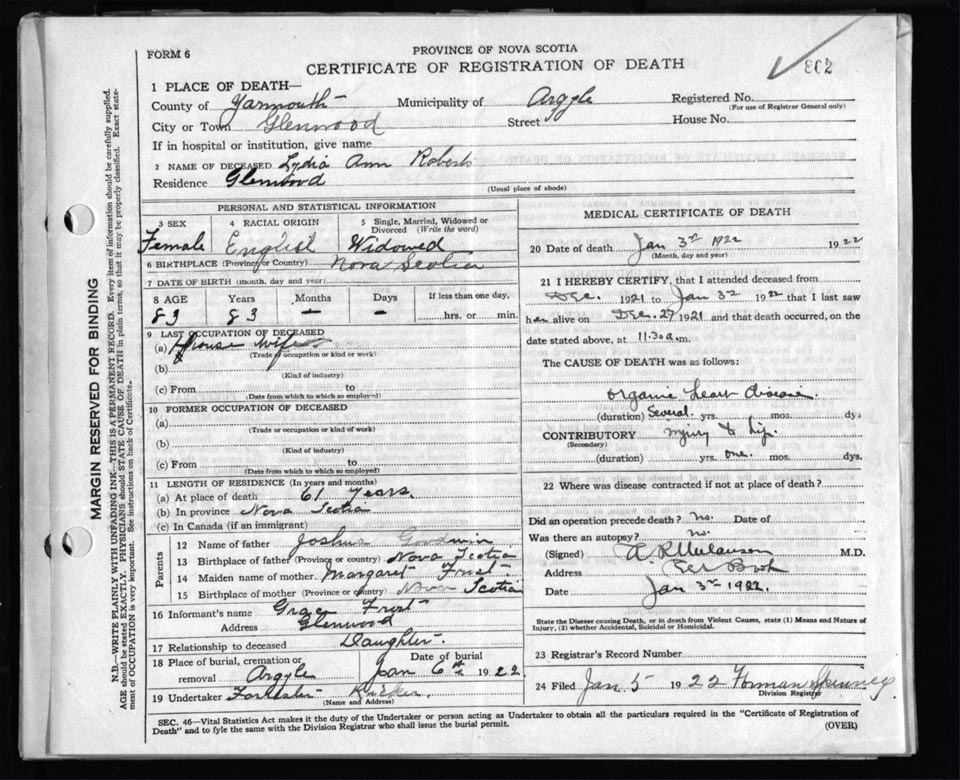 FORM 6
PROVINCE OF NOVA SCOTIA
CERTIFICATE OF REGISTRATION OF DEATH
802
1 PLACE OF DEATH—
County of Yarmouth Municipality of Argyle Registered No.
(For use of Registrar General only)
City or Town Glenwood Street House No.
If in hospital or institution, give name
2 NAME OF DECEASED Lydia Ann Roberts
Residence Glenwood
(Usual place of abode)
PERSONAL AND STATISTICAL INFORMATION
3 SEX 4 RACIAL ORIGIN 5 Single, Married, Widowed or Divorced (Write the word)
Female English Widowed
6 BIRTHPLACE (Province or Country) Nova Scotia
7 DATE OF BIRTH (month, day and year)
8 AGE Years Months Days If less than one day,
83 83 — — hrs. or min.
9 LAST OCCUPATION OF DECEASED
(a) House wife
(Trade or occupation or kind or work)
(b)
(Kind of industry)
(c) From to
(Date from which to which so employed)
10 FORMER OCCUPATION OF DECEASED
(a)
(Trade or occupation or kind of work)
(b)
(Kind of industry)
(c) From to
(Date from which to which so employed)
11 LENGTH OF RESIDENCE (In years and months)
(a) At place of death 61 Years.
(b) In province Nova Scotia
(c) In Canada (if an immigrant)
Parents
12 Name of father Joshua Goodwin
13 Birthplace of father (Province or country) Nova Scotia
14 Maiden name of mother Margaret Frost
15 Birthplace of mother (Province or country) Nova Scotia
16 Informant's name Grace Frost
Address Glenwood
17 Relationship to deceased Daughter.
18 Place of burial, cremation or removal Argyle Date of burial Jan 6th 1922
19 Undertaker
(Name and Address)
MEDICAL CERTIFICATE OF DEATH
20 Date of death Jan 3rd 1922 1922
(Month, day and year)
21 I HEREBY CERTIFY, that I attended deceased from
Dec. 1921 to Jan 3rd 1922 that I last saw
her alive on Dec. 27 1921 and that death occurred, on the
date stated above, at 11.30 a.m.
The CAUSE OF DEATH was as follows:
Organic heart disease.
(duration) Several yrs. mos. dys
CONTRIBUTORY injury to hip.
(Secondary)
(duration) yrs. one. mos. dys.
22 Where was disease contracted if not at place of death?
Did an operation precede death? No. Date of
Was there an autopsy? No.
(Signed) M.D.
Address
Date Jan 3rd 1922.
State the Disease causing Death, or in death from Violent Causes, state (1) Means and Nature of
Injury, (2) whether Accidental, Suicidal or Homicidal.
23 Registrar's Record Number
24 Filed Jan 5 1922 Forman Spinney
Division Registrar
SEC. 46—Vital Statistics Act makes it the duty of the Undertaker or person acting as Undertaker to obtain all the particulars required in the "Certificate of Registration of
Death" and to fyle the same with the Division Registrar who shall issue the burial permit.
(OVER)
MARGIN RESERVED FOR BINDING
N.B.—WRITE PLAINLY WITH UNFADING INK—THIS IS A PERMANENT RECORD. Every item of information should be carefully supplied.
AGE should be stated EXACTLY. PHYSICIANS should STATE CAUSE OF DEATH in plain terms, so that it may be properly classified. Exact state-
ment of OCCUPATION is very important. See instructions on back of Certificate.